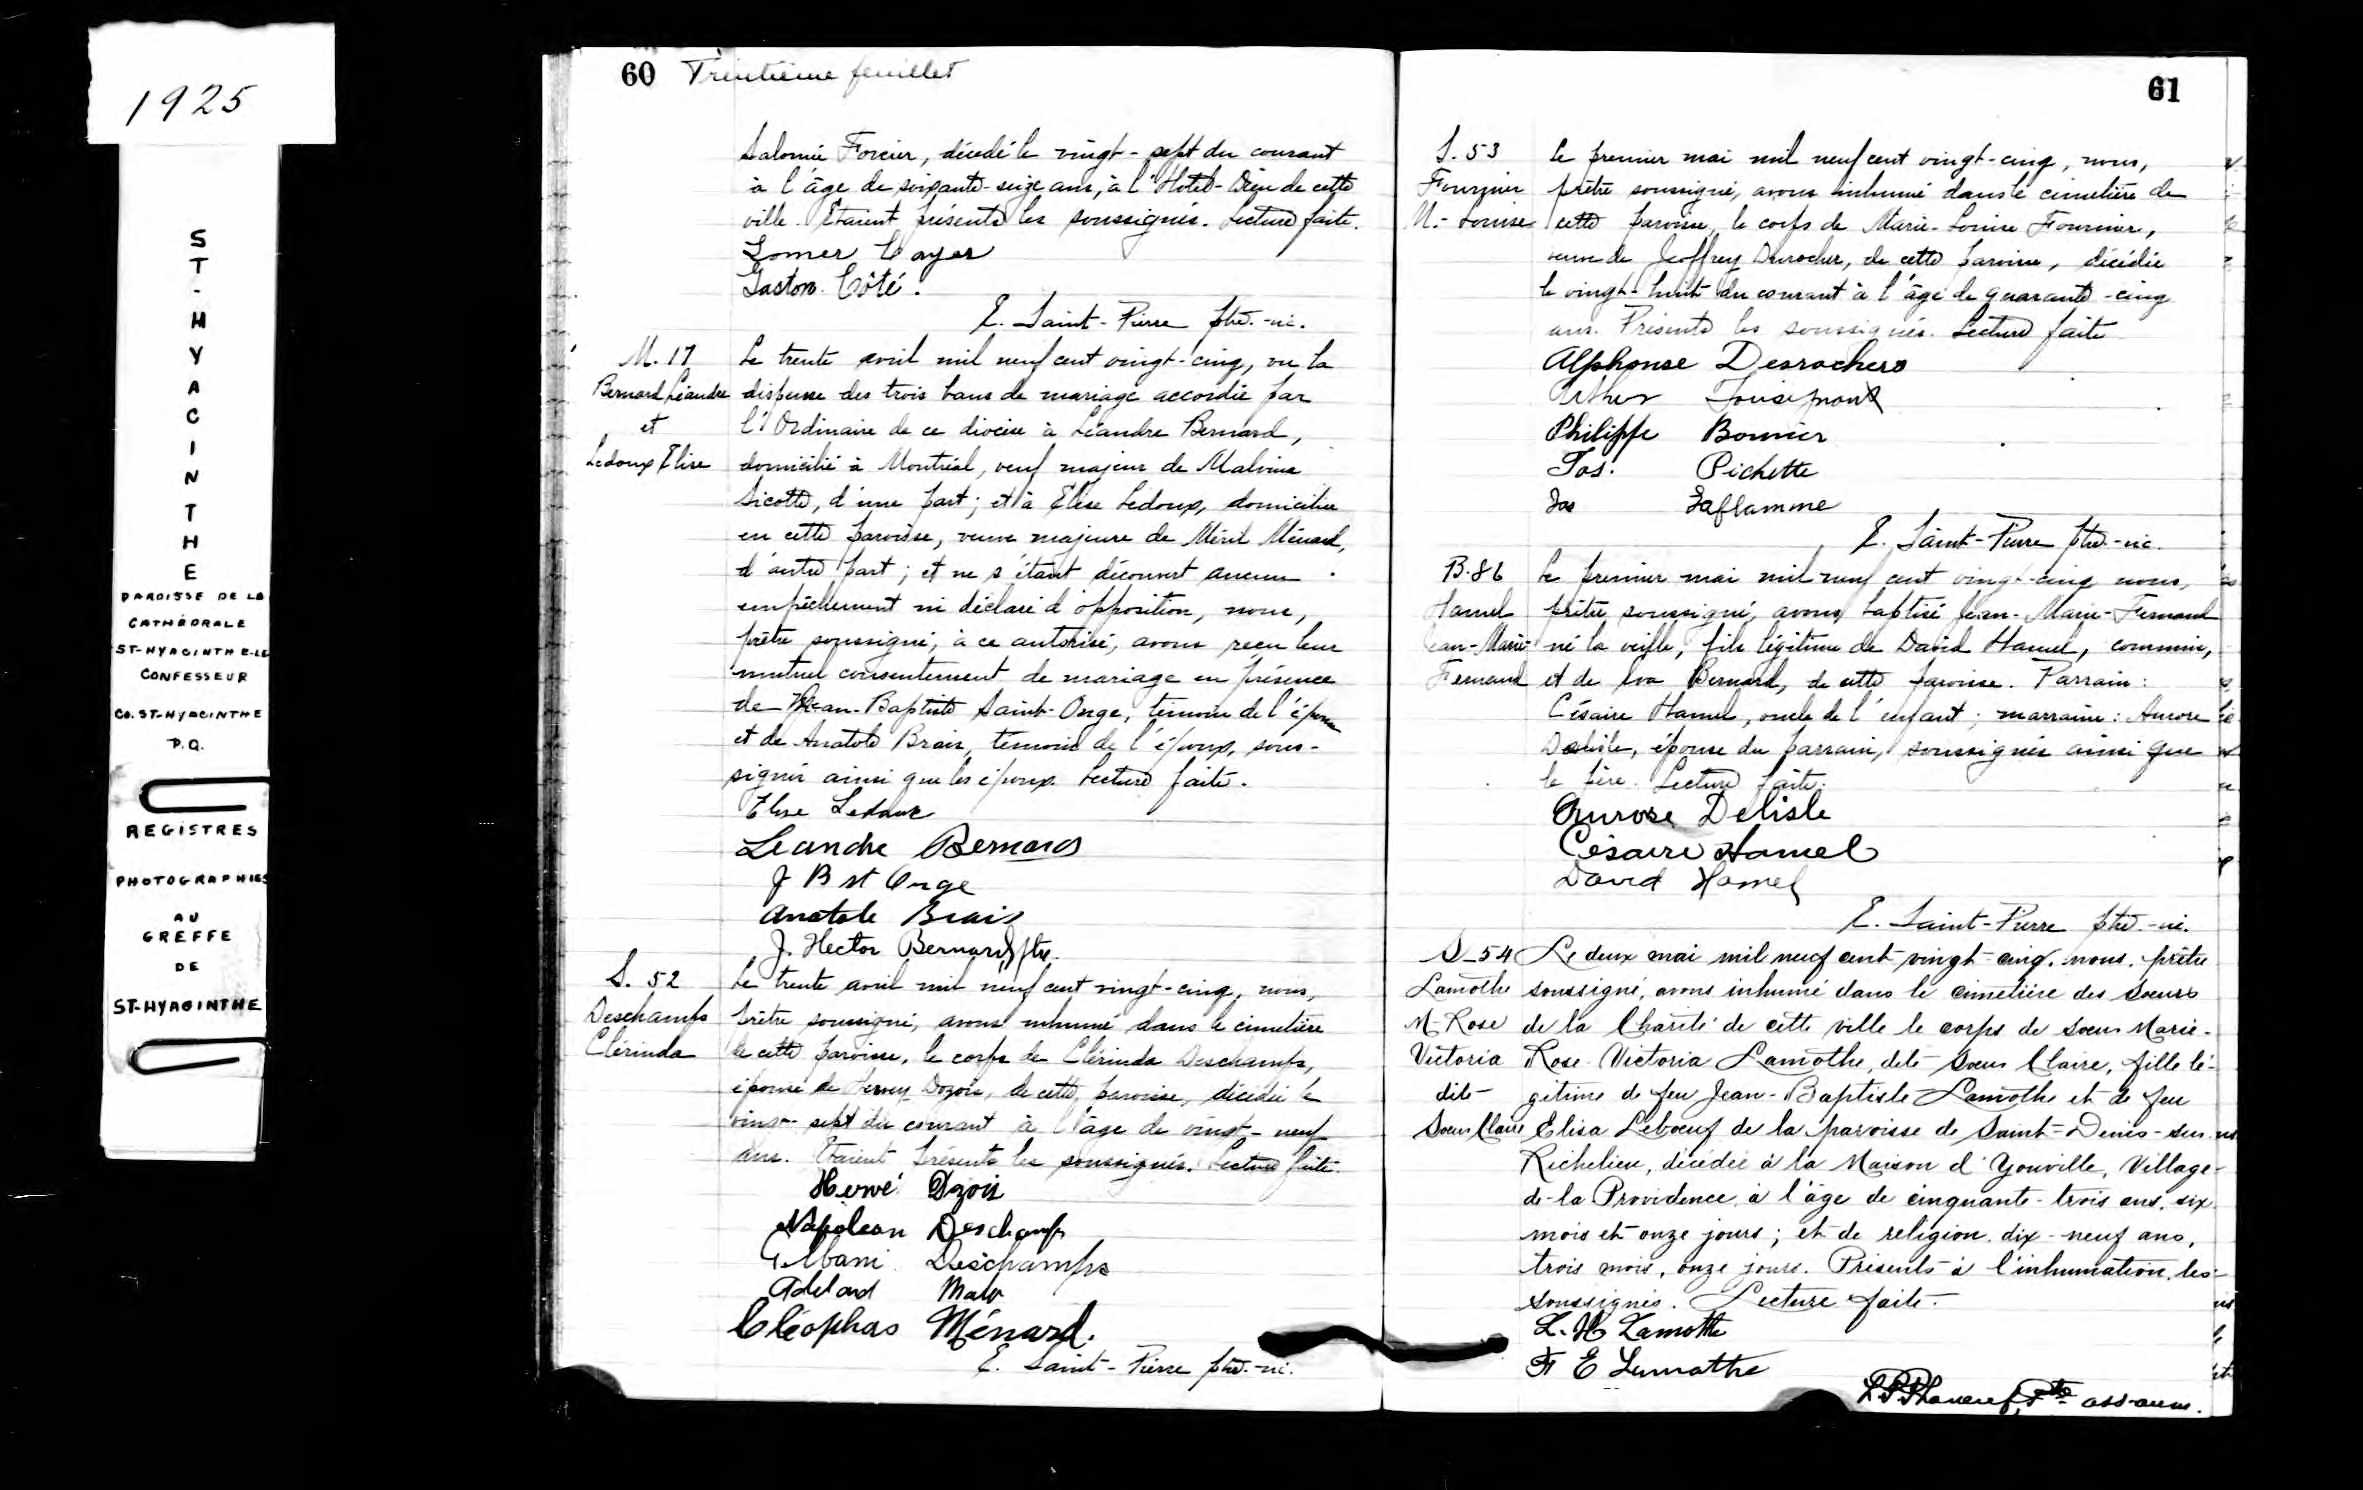 1925
ST-HYACINTHE
PAROISSE DE LA
CATHÉDRALE
ST-HYACINTHE-LE
CONFESSEUR
CO. ST-HYACINTHE
P.Q.
REGISTRES
PHOTOGRAPHIES
AU
GREFFE
DE
ST-HYACINTHE
60 Trentième feuillet
Salomée Forcier, décédé le vingt-sept du courant
à l'âge de soixante-seize ans, à l'Hôtel-Dieu de cette
ville. Etaient présents les soussignés. Lecture faite.
Lomer Cayer
Gaston Côté.
E. Saint-Pierre ptre.-vic.
M. 17
Bernard Léandre
et
Ledoux Elise
Le trente avril mil neuf cent vingt-cinq, vu la
dispense des trois bans de mariage accordée par
l'Ordinaire de ce diocèse à Léandre Bernard,
domicilié à Montréal, veuf majeur de Malvina
Sicotte, d'une part; et à Elise Ledoux, domiciliée
en cette paroisse, veuve majeure de Ménard,
d'autre part; et ne s'étant découvert aucun
empêchement ni déclaré d'opposition, nous,
prêtre soussigné, à ce autorisé, avons reçu leur
mutuel consentement de mariage en présence
de Jean-Baptiste Saint-Onge, témoin de l'épouse
et de Anatole Brais, témoin de l'époux, sous-
signés ainsi que les époux. Lecture faite.
Elise Ledoux
Leandre Bernard
J B St Onge
Anatole Brais
J. Hector Bernard, ptre.
S. 52
Deschamps
Clérinda
Le trente avril mil neuf cent vingt-cinq, nous,
prêtre soussigné, avons inhumé dans le cimetière
de cette paroisse, le corps de Clérinda Deschamps,
épouse de Dozois, de cette paroisse, décédée le
vingt-sept du courant à l'âge de vingt-neuf
ans. Etaient présents les soussignés. Lecture faite.
Hervé Dozois
Napoleon Deschamps
Deschamps
Adelard Malo
Cléophas Ménard.
E. Saint-Pierre ptre.-vic.
61
S. 53
Fournier
M.-Louise
Le premier mai mil neuf cent vingt-cinq, nous,
prêtre soussigné, avons inhumé dans le cimetière de
cette paroisse, le corps de Marie-Louise Fournier,
veuve de Jeoffrey Durocher, de cette paroisse, décédée
le vingt-huit du courant à l'âge de quarante-cinq
ans. Présents les soussignés. Lecture faite
Alphonse Desrochers
Philippe Bonnier
Jos. Pichette
Jos Laflamme
E. Saint-Pierre ptre.-vic.
B. 86
Hamel
Jean-Marie-
Fernand
Le premier mai mil neuf cent vingt-cinq nous,
prêtre soussigné, avons baptisé Jean-Marie-Fernand
né la veille, fils légitime de David Hamel, commis,
et de Eva Bernard, de cette paroisse. Parrain:
Césaire Hamel, oncle de l'enfant; marraine: Aurore
Delisle, épouse du parrain, soussignés ainsi que
le père. Lecture faite.
Aurore Delisle
Césaire Hamel
David Hamel
E. Saint-Pierre ptre.-vic.
S-54
Lamothe
M-Rose
Victoria
dite
Soeur Claire
Le deux mai mil neuf cent vingt-cinq, nous, prêtre
soussigné, avons inhumé dans le cimetière des Soeurs
de la Charité de cette ville le corps de Soeur Marie-
Rose-Victoria Lamothe, dite Soeur Claire, fille lé-
gitime de feu Jean-Baptiste Lamothe et de feu
Elisa Leboeuf de la paroisse de Saint-Denis-sur-
Richelieu, décédée à la Maison d'Youville, Village-
de-la Providence, à l'âge de cinquante-trois ans, six
mois et onze jours; et de religion dix-neuf ans,
trois mois, onze jours. Présents à l'inhumation, les
soussignés. Lecture faite.
L. H Lamothe
F E Lamothe
L P Phaneuf, Ptre ass-aum.